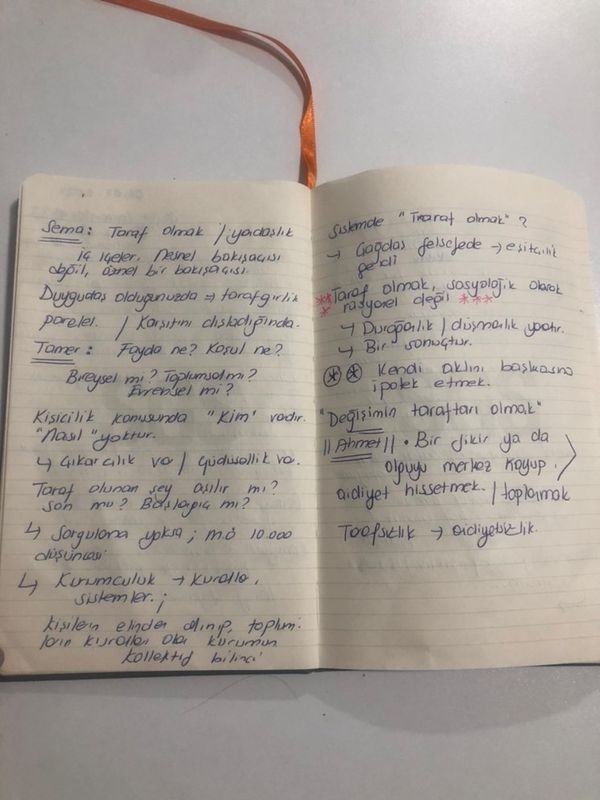 Sema: Taraf olmak / yandaşlık
iç içeler. Nesnel bakışaçısı
değil, öznel bir bakışaçısı.
Duygudaş olduğunuzda ⇒ tarafgirlik
parelel. / Karşıtını dışladığında.
Tamer: Fayda ne? Koşul ne?
Bireysel mi? Toplumsal mı?
Evrensel mi?
Kişicilik konusunda "Kim" vardır.
"Nasıl" yoktur.
↳ Çıkarcılık var / Güdüsellik var.
Taraf olunan şey aşılır mı?
Son mu? Başlangıç mı?
↳ Sorgulama yoksa; m.ö 10.000
düşüncesi
↳ Kurumculuk → Kurallar,
sistemler.;
Kişilerin elinden alınıp, toplum-
ların kuralları olan kurumun
kollektif bilinci
Sistemde "Taraf olmak" ?
→ Çağdaş felsefede → eşitçilik
geldi
** Taraf olmak, sosyolojik olarak
* rasyonel değil ***
→ Durağanlık / düşmanlık yaratır.
→ Bir sonuçtur.
⊛ ⊛ Kendi aklını başkasına
ipotek etmek.
"Değişimin taraftarı olmak"
|| Ahmet || • Bir fikir ya da
olguyu merkez koyup,
aidiyet hissetmek. / toplanmak
Tarafsızlık → aidiyetsizlik.